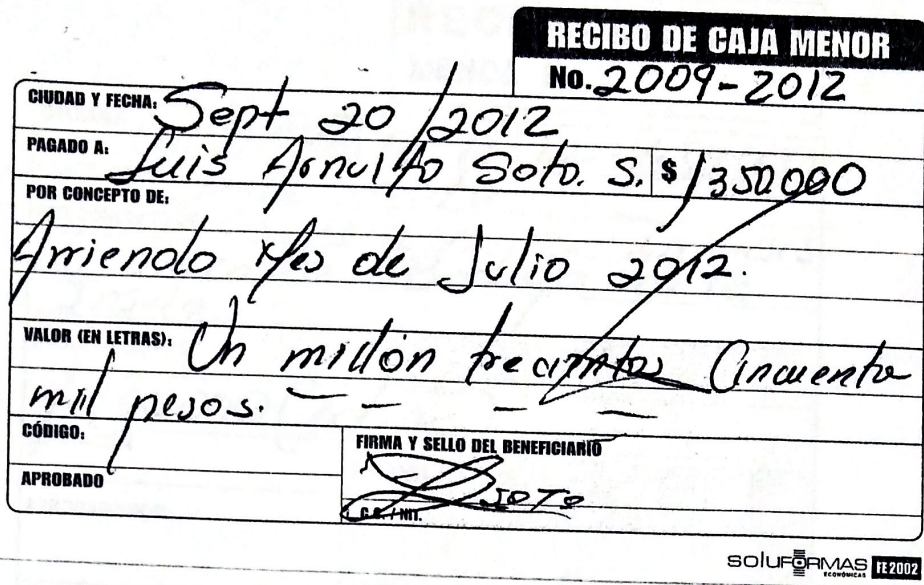 RECIBO DE CAJA MENOR
No. 2009-2012
CIUDAD Y FECHA: Sept 20/2012
PAGADO A: Luis Arnulfo Soto. S. $ 1350.000
POR CONCEPTO DE:
Arriendo Mes de Julio 2012.
VALOR (EN LETRAS): Un millón trecientos Cincuenta
mil pesos. — — — — —
CÓDIGO:
FIRMA Y SELLO DEL BENEFICIARIO
APROBADO
SOTO
C.C. / NIT.
SOLUFORMAS ECONÓMICAS FE2002